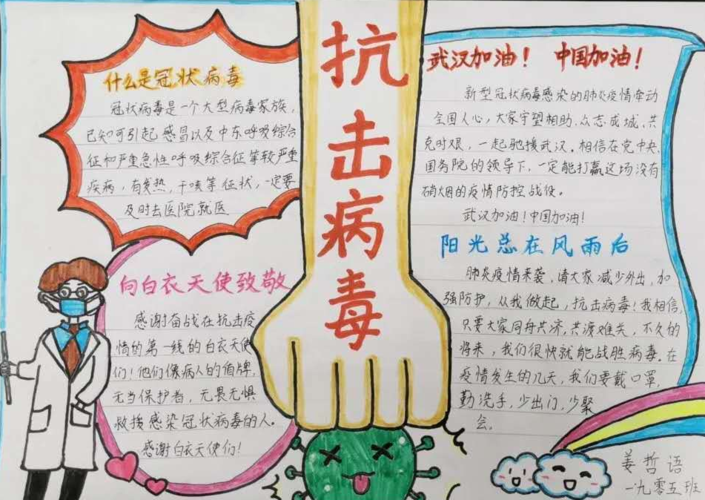 抗击病毒
什么是冠状病毒
冠状病毒是一个大型病毒家族,
已知可引起感冒以及中东呼吸综合
征和严重急性呼吸综合征等较严重
疾病,有发热,干咳等症状,一定要
及时去医院就医
向白衣天使致敬
感谢奋战在抗击疫
情的第一线的白衣天使
们!他们像病人的盾牌,
无当保护者,无畏无惧
救援感染冠状病毒的人。
感谢白衣天使们!
武汉加油! 中国加油!
新型冠状病毒感染的肺炎疫情牵动
全国人心,大家守望相助、众志成城、共
克时艰,一起驰援武汉。相信在党中央、
国务院的领导下,一定能打赢这场没有
硝烟的疫情防控战役。
武汉加油!中国加油!
阳光总在风雨后
肺炎疫情来袭,请大家减少外出,加
强防护,从我做起,抗击病毒!我相信,
只要大家同舟共济,共渡难关,不久的
将来,我们很快就能战胜病毒,在
疫情发生的几天,我们要戴口罩,
勤洗手,少出门,少聚
会。
姜哲语
一九零五班